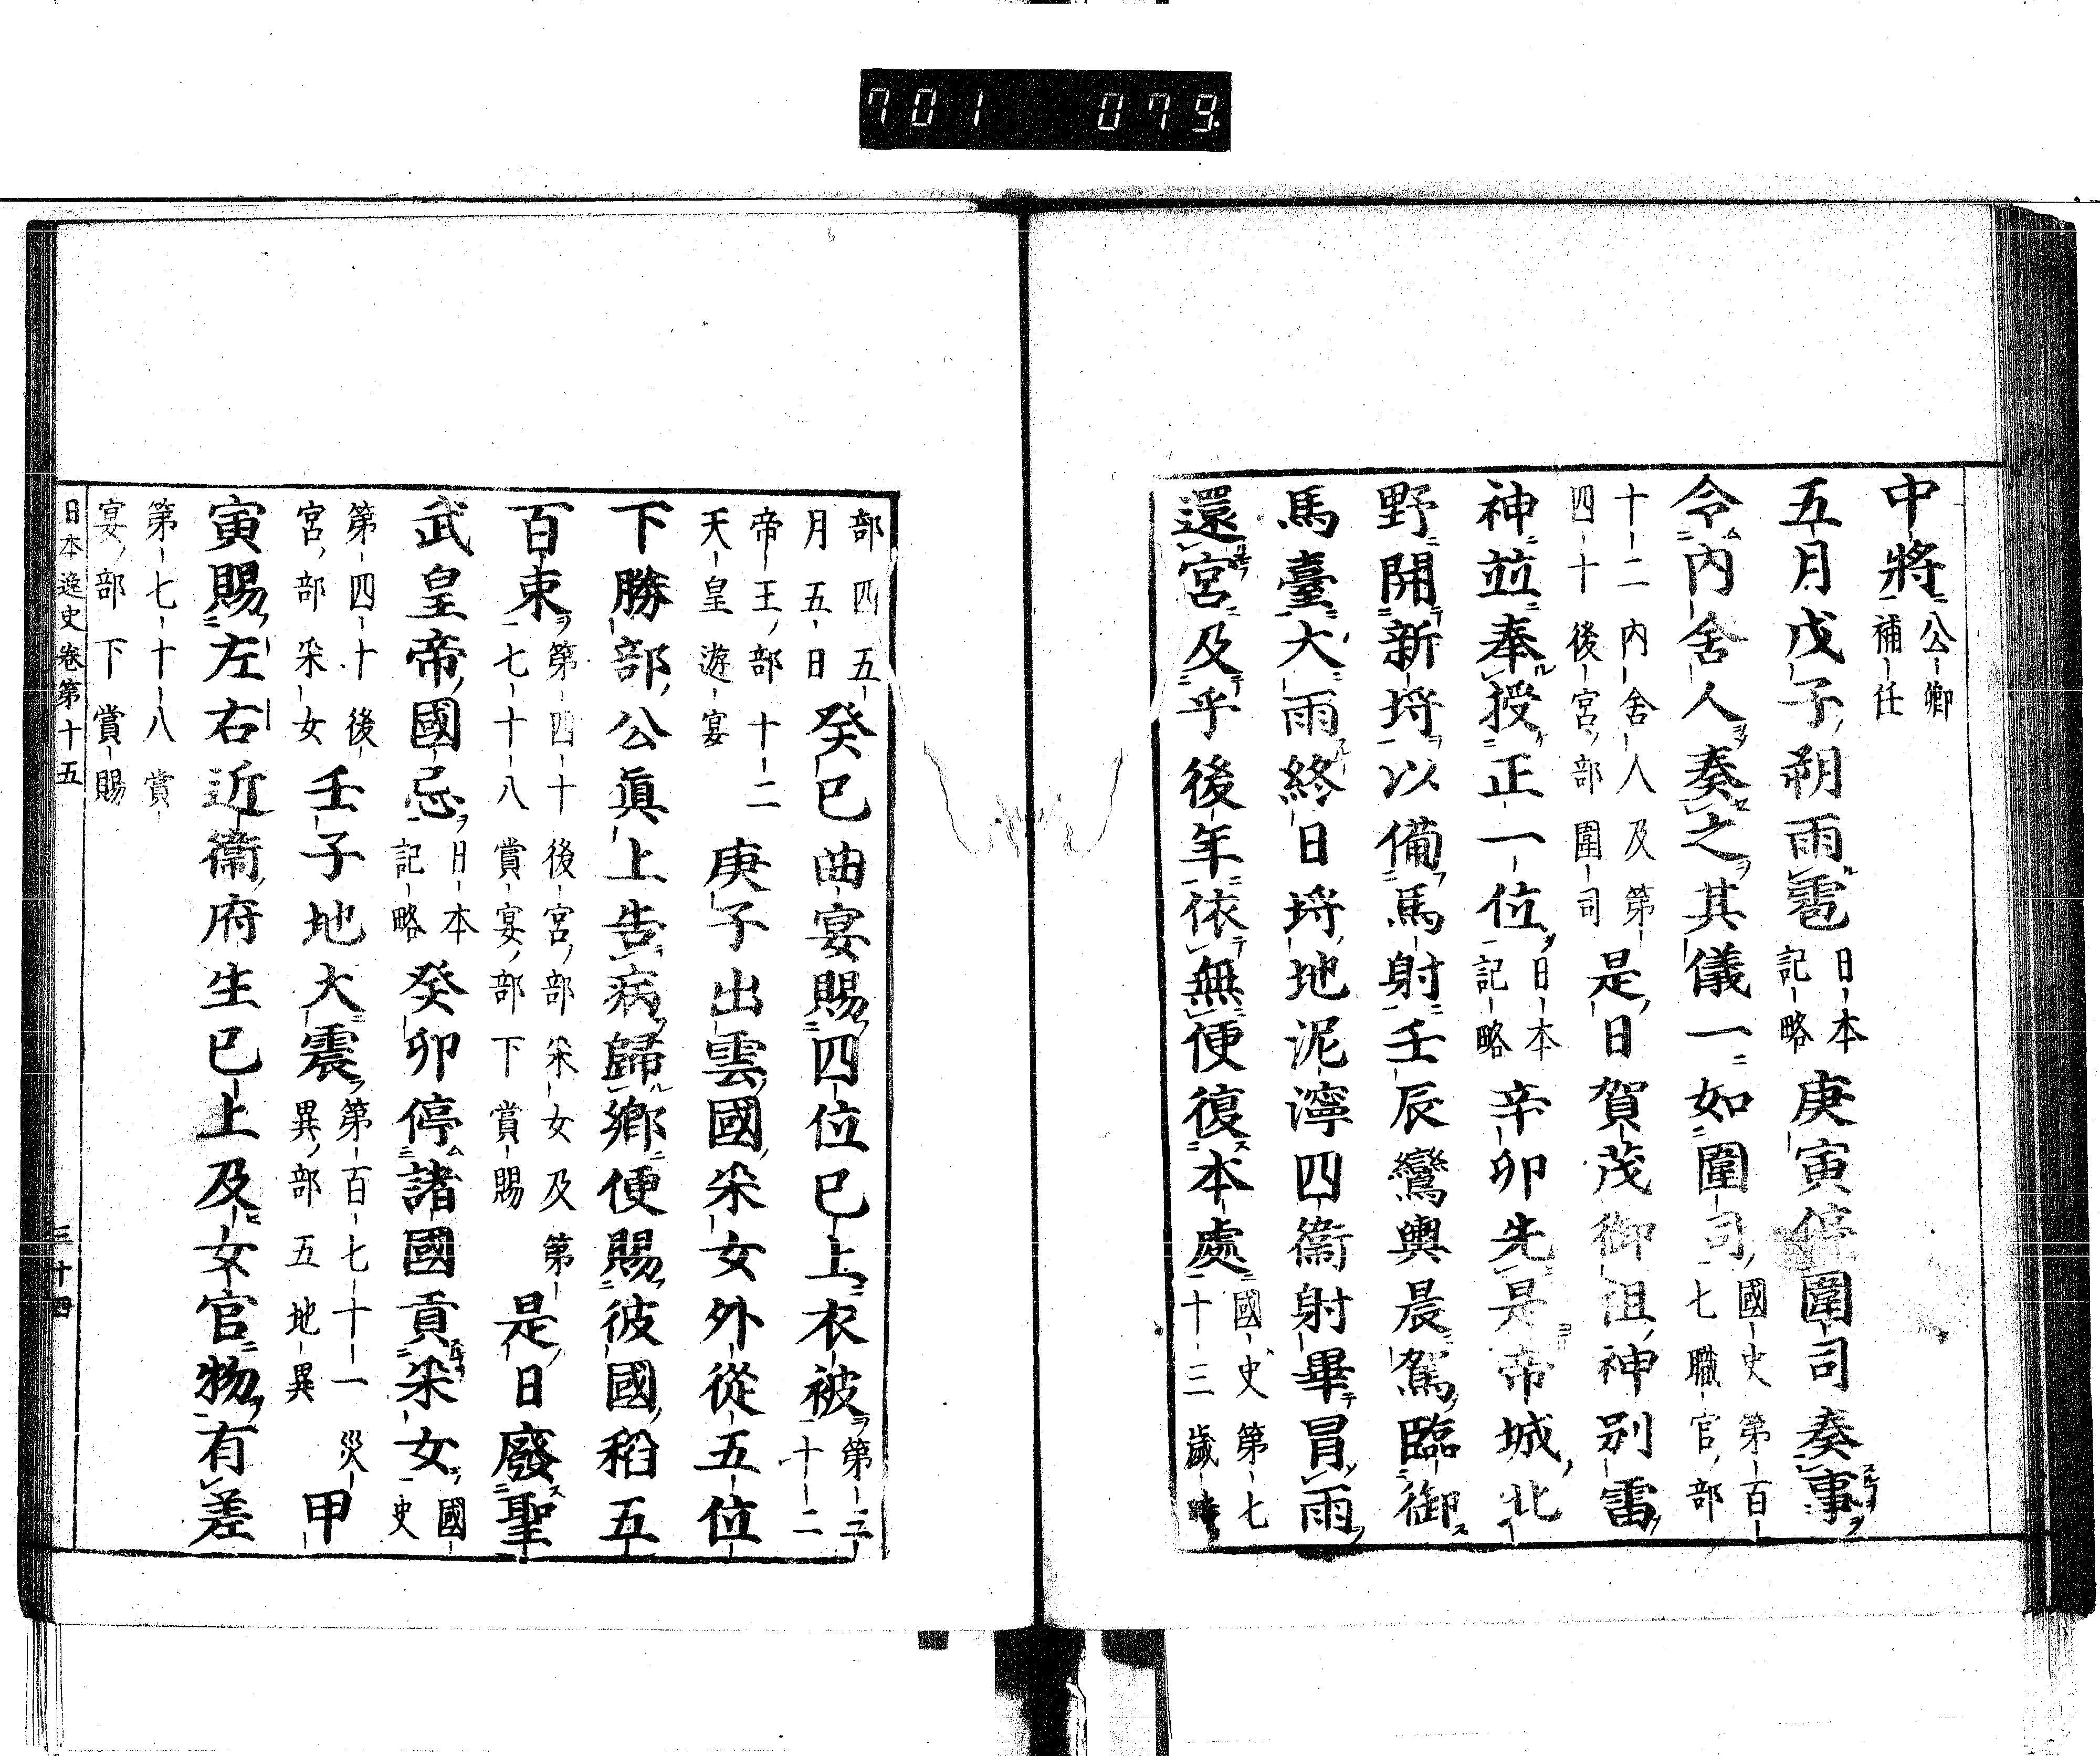 701 079
中將公卿補任
五月戊子朔雨雹日本記略庚寅停圍司奏事
令內舍人奏之其儀一如圍司國史第百七職官部
十二內舍人及第四十後宮部圍司是日賀茂御祖神別雷
神並奉授正一位日本記略辛卯先是帝城北
野開新埓以備馬射壬辰鸞輿晨駕臨御
馬臺大雨終日埓地泥濘四衞射畢冒雨
還宮及乎後年依無便復本處國史第七十三歲時
部四五月五日癸巳曲宴賜四位已上衣被第三十二
帝王部十二天皇遊宴庚子出雲國采女外從五位
下勝部公眞上告病歸鄉便賜彼國稻五
百束第四十後宮部采女及第七十八賞宴部下賞賜是日廢聖
武皇帝國忌日本記略癸卯停諸國貢采女國史
第四十後宮部采女壬子地大震第百七十一災異部五地異甲
寅賜左右近衞府生已上及女官物有差
第七十八賞宴部下賞賜
日本逸史卷第十五 三十四